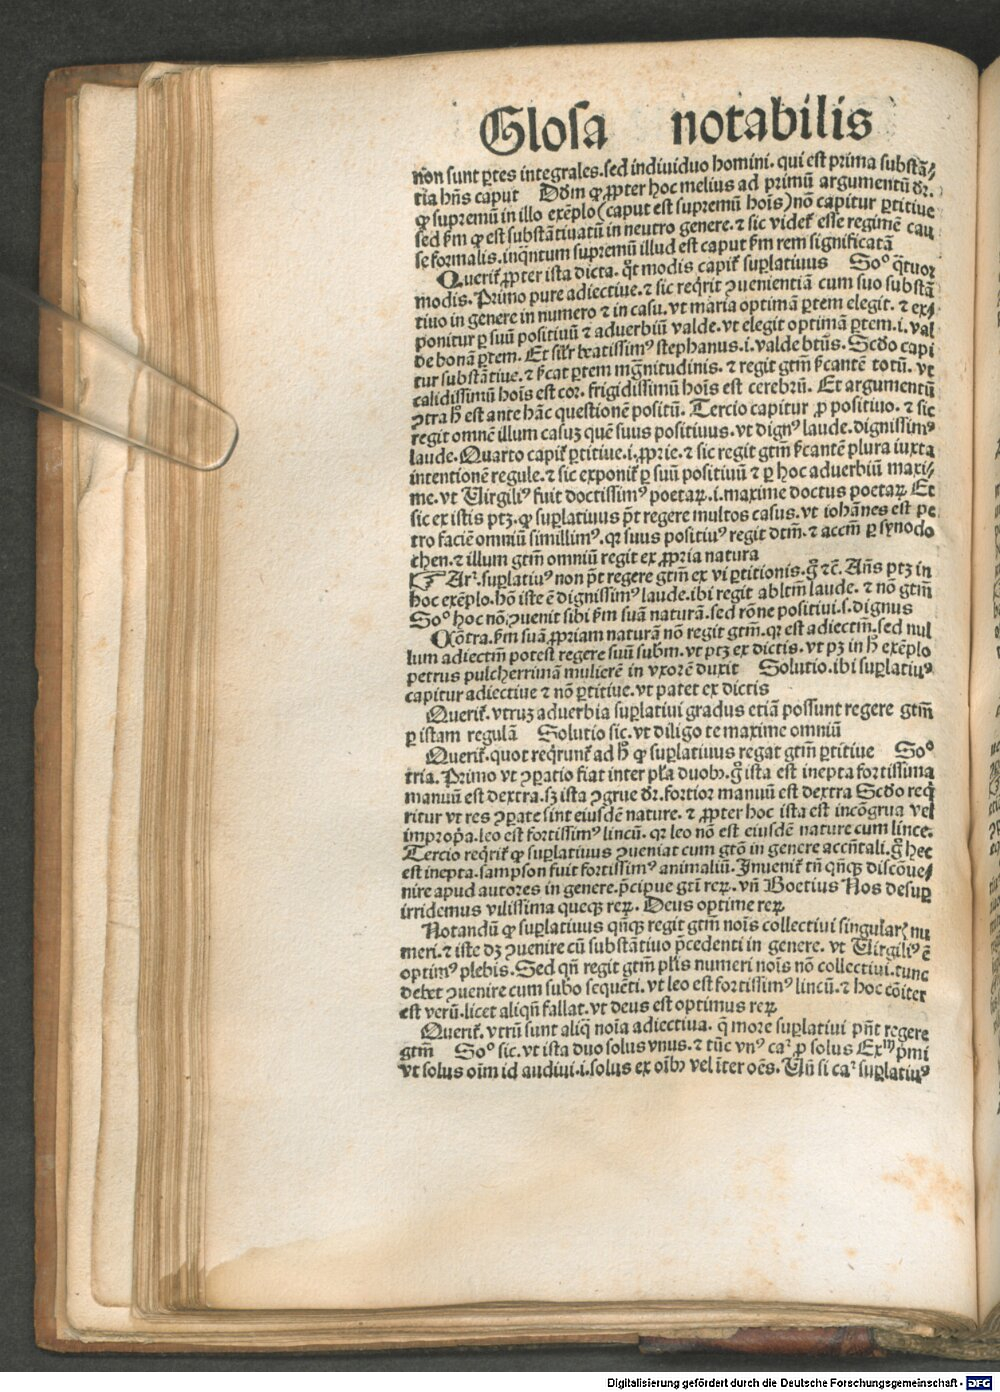 Glosa notabilis
non sunt ꝑtes integrales. sed indiuiduo homini. qui est prima substā⸗
tia hn̄s caput Dōm ꝙ ꝓpter hoc melius ad primū argumentū dr̄.
ꝙ supremū in illo exēplo (caput est supremū hoīs) nō capitur ꝑtitiue
sed ẜm ꝙ est substātiuatū in neutro genere. ⁊ sic videt̄ esse regimē cau
se formalis. inqͣntum supremū illud est caput ẜm rem significatā
Querit̄ ꝓpter ista dicta. qͦt modis capit̄ suꝑlatiuus Soᵒ qͣtuor
modis. Primo pure adiectiue. ⁊ sic reqͥrit ꝯuenientiā cum suo substā
tiuo in genere in numero ⁊ in casu. vt maria optimā ꝑtem elegit. ⁊ ex⸗
ponitur ꝑ suū positiuū ⁊ aduerbiū valde. vt elegit optimā ꝑtem .i. val
de bonā ꝑtem. Et sil̄r beatissimꝰ stephanus .i. valde btūs. Scd̄o capi
tur substātiue. ⁊ ẜcat ꝑtem mgͣnitudinis. ⁊ regit gtm̄ ẜcantē totū. vt
calidissimū hoīs est cor. frigidissimū hoīs est cerebrū. Et argumentū
ꝯtra ħ est ante hāc questionē positū. Tercio capitur ꝓ positiuo. ⁊ sic
regit omnē illum casuꝫ quē suus positiuus. vt dignꝰ laude. dignissimꝰ
laude. Quarto capit̄ ꝑtitiue .i. ꝓprie. ⁊ sic regit gtm̄ ẜcantē plura iuxta
intentionē regule. ⁊ sic exponit̄ ꝑ suū positiuū ⁊ ꝑ hoc aduerbiū maxi⸗
me. vt Virgiliꝰ fuit doctissimꝰ poetaꝝ .i. maxime doctus poetaꝝ Et
sic ex istis ptꝫ. ꝙ suꝑlatiuus pn̄t regere multos casus. vt iohānes est pe
tro faciē omniū simillimꝰ. qꝛ suus positiuꝰ regit dtm̄. ⁊ accm̄ ꝑ synodo
chen. ⁊ illum gtm̄ omniū regit ex ꝓpria natura
☞ Arꝛ. suꝑlatiuꝰ non pt̄ regere gtm̄ ex vi ꝑtitionis. gͦ ⁊c̄. Añs ptꝫ in
hoc exēplo. hō iste ē dignissimꝰ laude. ibi regit abltm̄ laude. ⁊ nō gtm̄
Soᵒ hoc nō ꝯuenit sibi ẜm suā naturā. sed rōne positiui .s. dignus
Cōtra. ẜm suā ꝓpriam naturā nō regit gtm̄. qꝛ est adiectm̄. sed nul
lum adiectm̄ potest regere suū subm̄. vt ptꝫ ex dictis. vt pꝫ in ħ exēplo
petrus pulcherrimā mulierē in vxorē duxit Solutio. ibi suꝑlatiuꝰ
capitur adiectiue ⁊ nō ꝑtitiue. vt patet ex dictis
Querit̄. vtruꝫ aduerbia suꝑlatiui gradus etiā possunt regere gtm̄
ꝑ istam regulā Solutio sic. vt diligo te maxime omniū
Querit̄. quot reqͥrunt̄ ad ħ ꝙ suꝑlatiuus regat gtm̄ ꝑtitiue Soᵒ
tria. Primo vt ꝯꝑatio fiat inter pl̄a duobꝫ. gͦ ista est inepta fortissima
manuū est dextra. sꝫ ista ꝯgrue dr̄. fortior manuū est dextra Scd̄o reqͥ
ritur vt res ꝯꝑate sint eiusdē nature. ⁊ ꝓpter hoc ista est incōgrua vel
impropͥa. leo est fortissimꝰ lincū. qꝛ leo nō est eiusdē nature cum lince.
Tercio reqͥrit̄ ꝙ suꝑlatiuus ꝯueniat cum gtō in genere accn̄tali. gͦ hec
est inepta. sampson fuit fortissimꝰ animaliū. Inuenit̄ tn̄ qn̄qꝫ discōue⸗
nire apud autores in genere. p̄cipue gtī reꝝ. vn̄ Boetius Nos desuꝑ
irridemus vilissima queqꝫ reꝝ. Deus optime reꝝ
Notandū ꝙ suꝑlatiuus qn̄qꝫ regit gtm̄ noīs collectiui singularꝭ nu
meri. ⁊ iste dꝫ ꝯuenire cū substātiuo p̄cedenti in genere. vt Virgiliꝰ ē
optimꝰ plebis. Sed qn̄ regit gtm̄ pl̄is numeri noīs nō collectiui. tunc
debet ꝯuenire cum subo sequēti. vt leo est fortissimꝰ lincū. ⁊ hoc cōiter
est verū. licet aliqn̄ fallat. vt deus est optimus reꝝ
Querit̄. vtrū sunt aliqͣ noīa adiectiua. qͣ more suꝑlatiui pn̄t regere
gtm̄ Soᵒ sic. vt ista duo solus vnus. ⁊ tūc vnꝰ caꝛ ꝓ solus Exᵐ pͥmi
vt solus oīm id audiui .i. solus ex oībꝫ vel īter oēs. Vn̄ si caꝛ suꝑlatiuꝰ
Digitalisierung gefördert durch die Deutsche Forschungsgemeinschaft - DFG